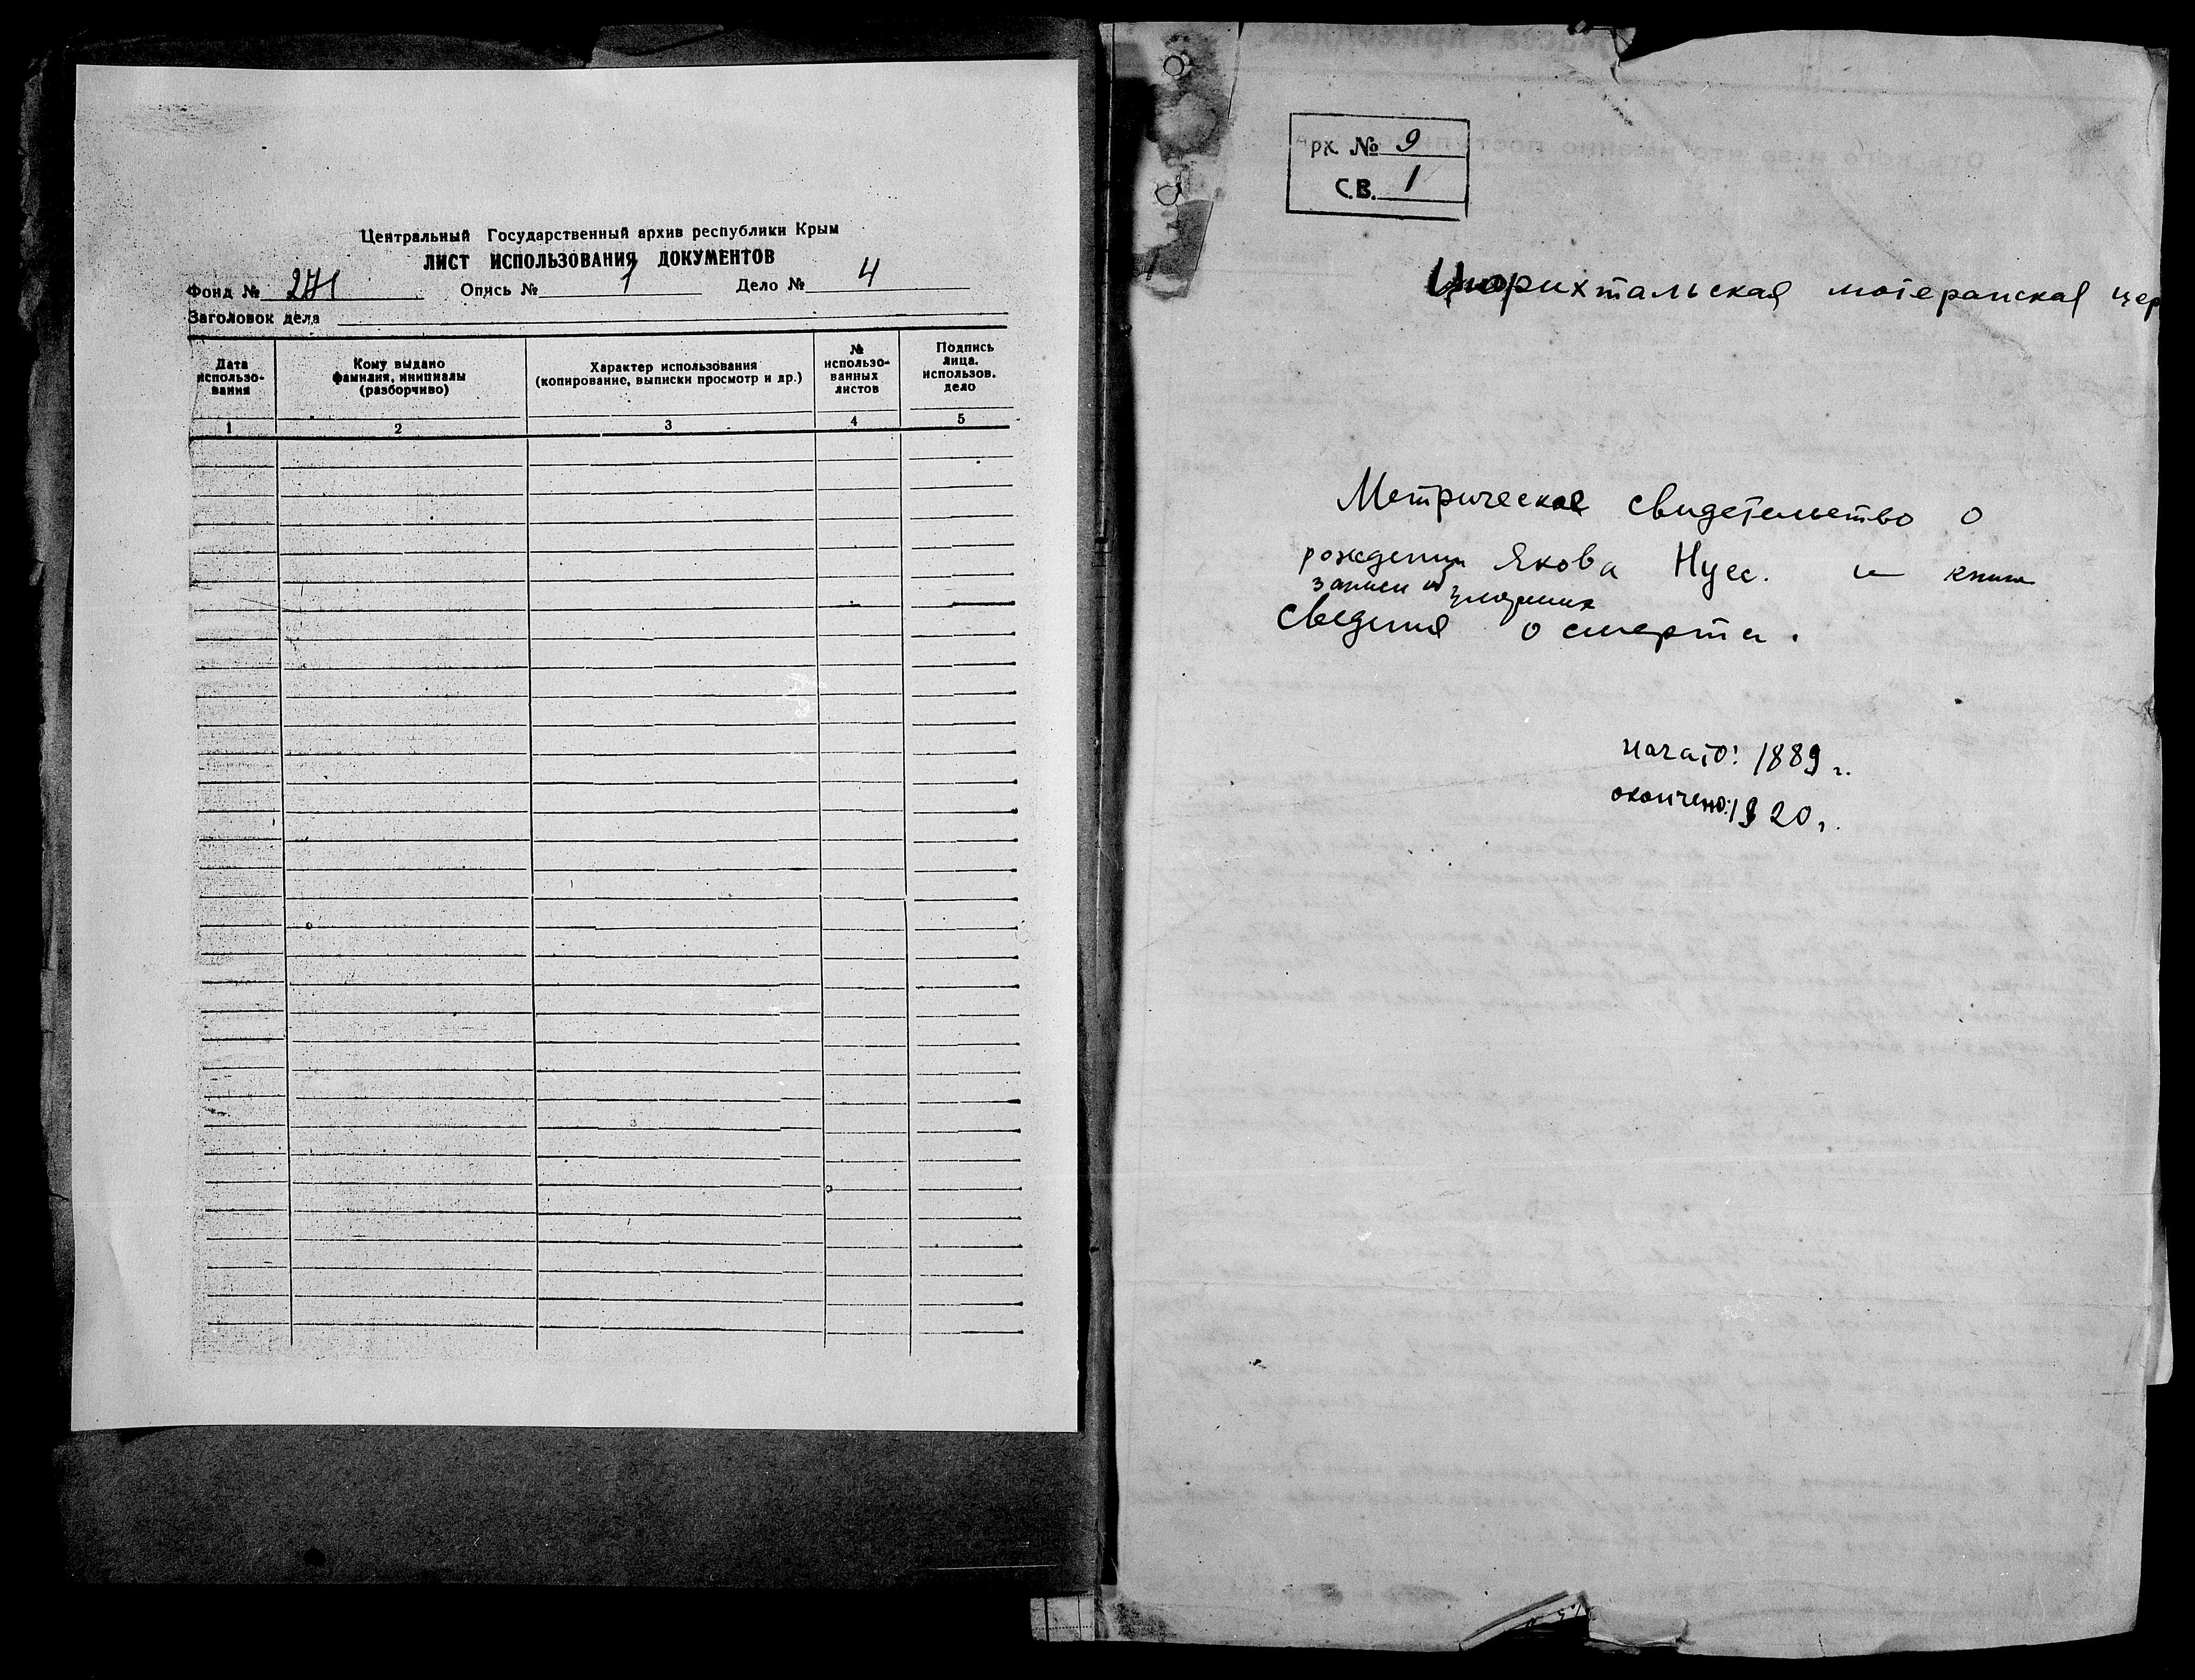 Центральный Государственный архив республики Крым
ЛИСТ ИСПОЛЬЗОВАНИЯ ДОКУМЕНТОВ
Фонд № 271 Опись № 1 Дело № 4
Заголовок дела
Дата использо-вания
Кому выдано фамилия, инициалы (разборчиво)
Характер использования (копирование, выписки просмотр и др.)
№ использо-ванных листов
Подпись лица. использов. дело
1 2 3 4 5
рх. № 9
С.В. 1
Цюрихтальская лютеранская цер
Метрическое свидетельство о
рождении Якова Нуес. и книга
записи об умерших
сведения о смерти.
начато: 1889 г.
окончено: 1920 г.